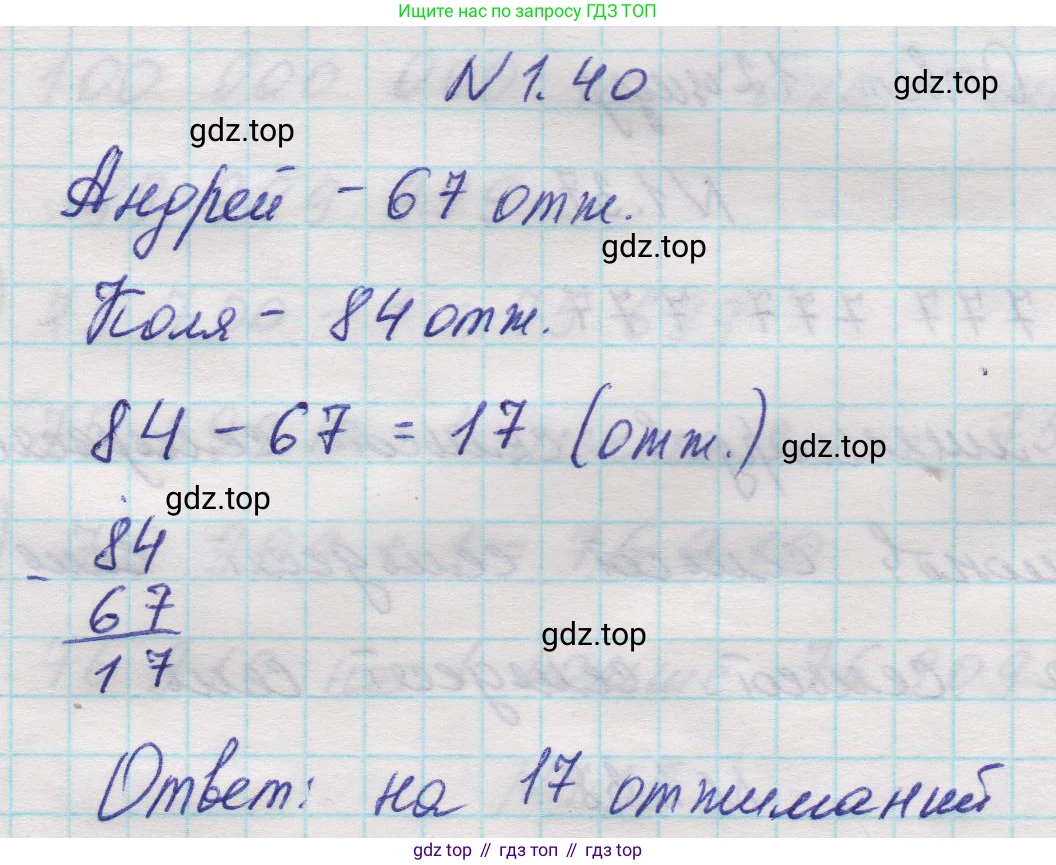 Ищите нас по запросу ГДЗ ТОП
N 1.40
gdz.top
gdz.top
Андрей - 67 отж.
gdz.top
Коля - 84 отж.
84 - 67 = 17 (отж.)
gdz.top
gdz.top
84
-
67
17
gdz.top
Ответ: на 17 отжиманий
gdz top // гдз топ // гдз top